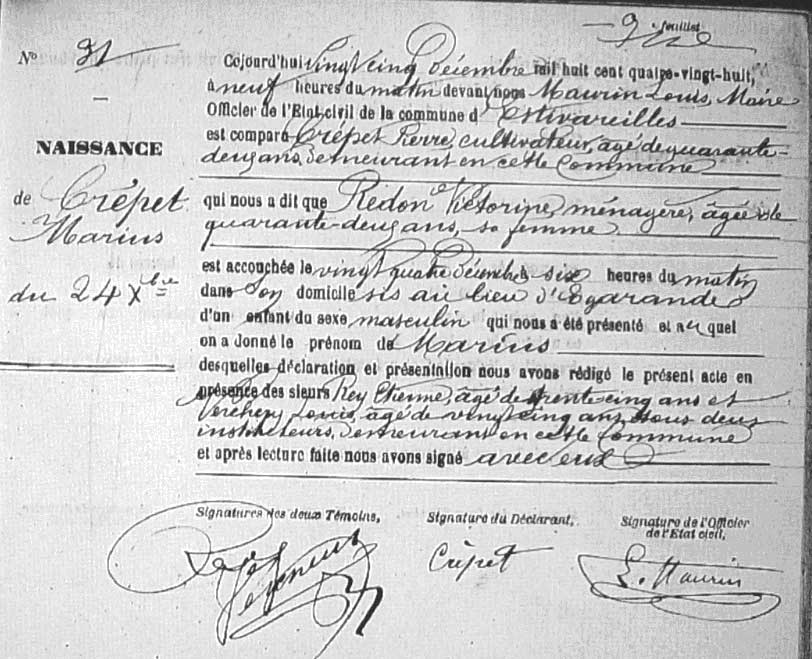 9 feuillet
N° 31
Cejourd'hui vingt cinq Décembre mil huit cent quatre-vingt-huit,
à neuf heures du matin devant nous Maurin Louis, Maire
Officier de l'Etat civil de la commune d'Estivareilles
est comparu Crépet Pierre, cultivateur, âgé de quarante-
deux ans, demeurant en cette Commune
NAISSANCE
de Crépet
Marius
du 24 Xbre
qui nous a dit que Redon Victorine, ménagère, âgée de
quarante-deux ans, sa femme
est accouchée le vingt quatre Décembre six heures du matin
dans son domicile sis au lieu d'Egarande
d'un enfant du sexe masculin qui nous a été présenté et auquel
on a donné le prénom de Marius
desquelles déclaration et présentation nous avons rédigé le présent acte en
présence des sieurs Rey Etienne, âgé de trente cinq ans et
Verchery Louis, âgé de vingt cinq ans, tous deux
instituteurs, demeurant en cette Commune
et après lecture faite nous avons signé avec eux
Signatures des deux Témoins,
Signature du Déclarant,
Signature de l'Officier
de l'Etat civil,
Crépet
L. Maurin